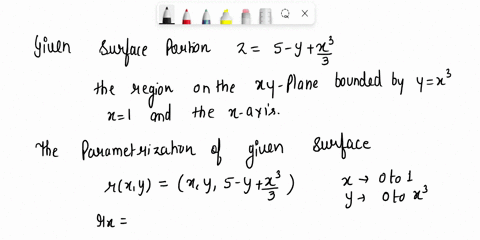 Given Surface Portion z = 5-y+x³/3
the region on the xy-Plane bounded by y=x³
x=1 and the x-axis.
The Parametrization of given Surface
r(x,y) = (x, y, 5-y+x³/3) x → 0 to 1
y → 0 to x³
rx =